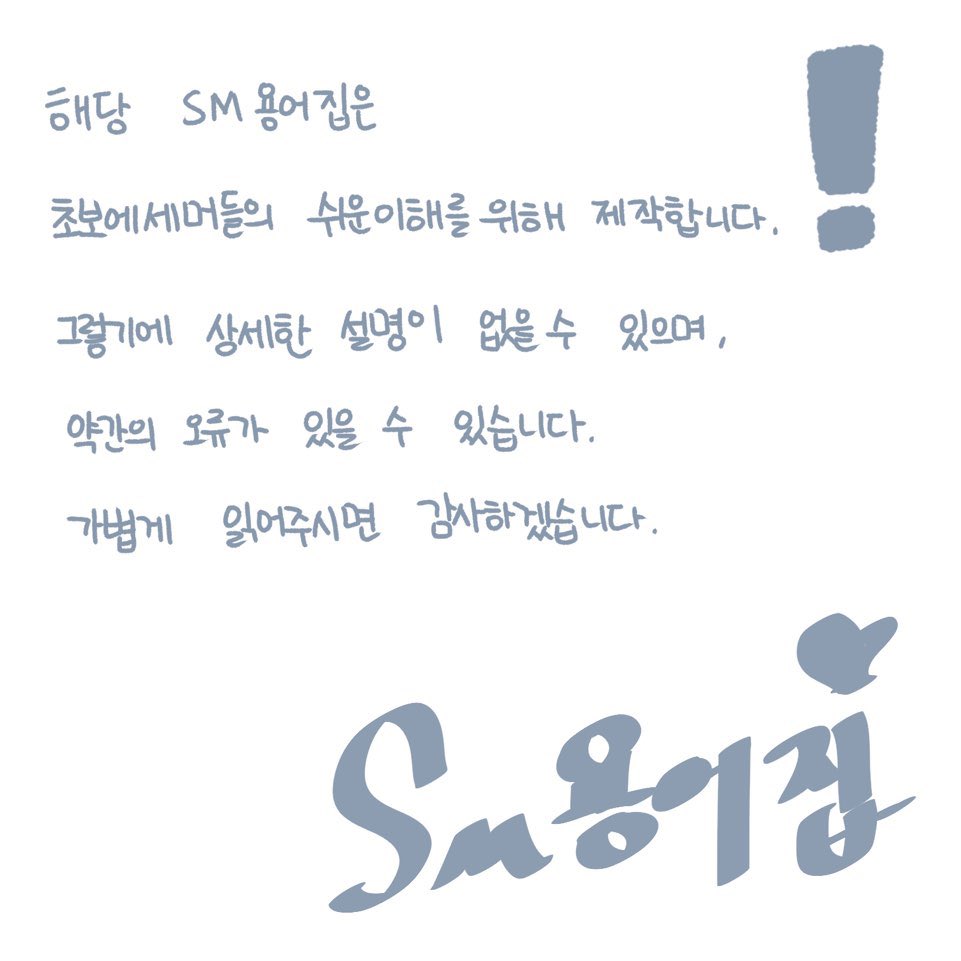 해당 SM용어집은
초보에세머들의 쉬운이해를 위해 제작합니다.
그렇기에 상세한 설명이 없을수 있으며,
약간의 오류가 있을 수 있습니다.
가볍게 읽어주시면 감사하겠습니다.
Sm용어집